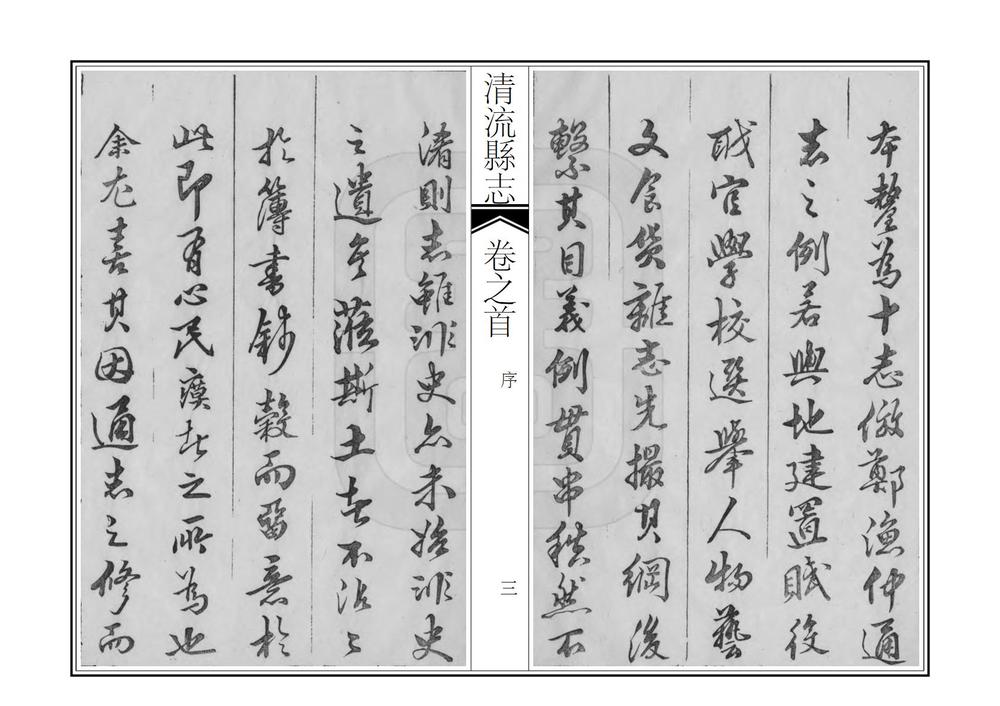 本釐為十志倣鄭漁仲通
志之例若輿地建置賦役
職官學校選舉人物藝
文食貨雜志先撮其綱後
繫其目義例貫串秩然不
清流縣志
卷之首
序
三
淆則志雖非史亦未始非史
之遺矣蒞斯土者不沾沾
於簿書錢穀而留意於
此即有心民瘼者之所為也
余尤喜其因通志之修而